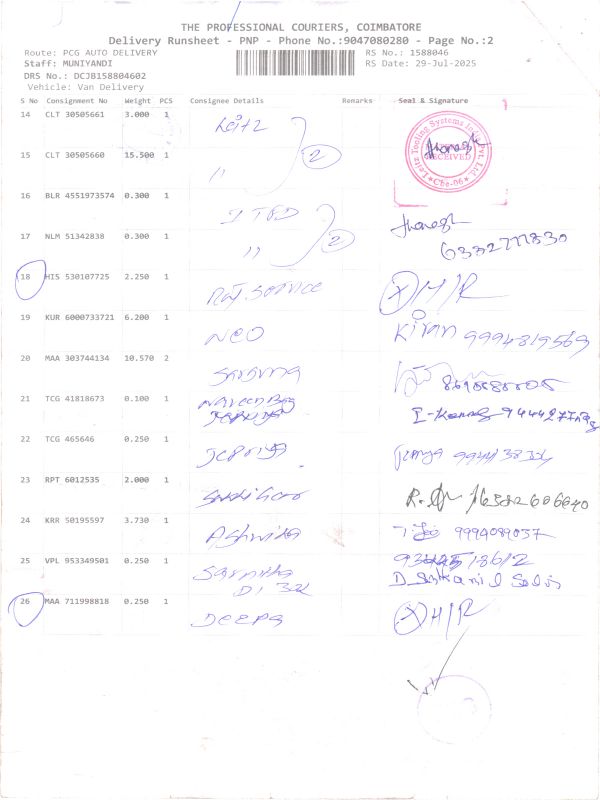 THE PROFESSIONAL COURIERS, COIMBATORE
Delivery Runsheet - PNP - Phone No.:9047080280 - Page No.:2
Route: PCG AUTO DELIVERY RS No.: 1588046
Staff: MUNIYANDI RS Date: 29-Jul-2025
DRS No.: DCJB158804602
Vehicle: Van Delivery
S No Consignment No Weight PCS Consignee Details Remarks Seal & Signature
14 CLT 30505661 3.000 1 Leitz
15 CLT 30505660 15.500 1 " 2
Leitz Tooling Systems India Pvt. Ltd. RECEIVED Cbe-06
16 BLR 4551973574 0.300 1
17 NLM 51342838 0.300 1 " 2 6332777830
18 HIS 530107725 2.250 1 Raj Service X H/R
19 KUR 6000733721 6.200 1 NEO Kiran 9994819569
20 MAA 303744134 10.570 2 Saravana
21 TCG 41818673 0.100 1
22 TCG 465646 0.250 1
23 RPT 6012535 2.000 1
24 KRR 50195597 3.730 1 Ashwika 9994089037
25 VPL 953349501 0.250 1
26 MAA 711998818 0.250 1 Deepa X H/R